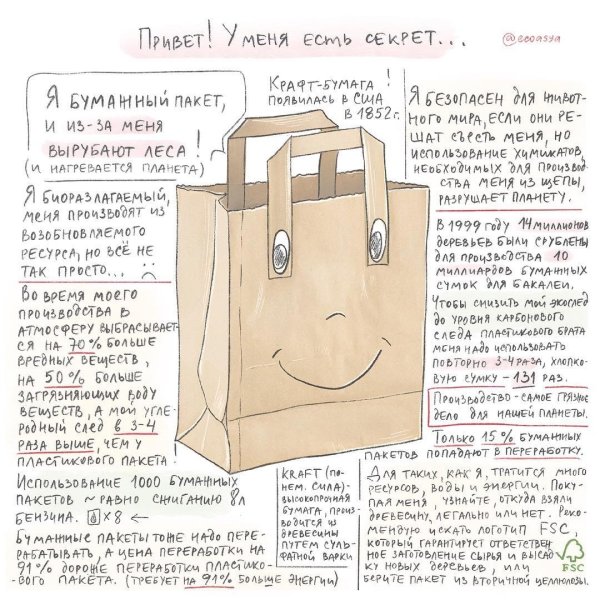 Привет! У меня есть секрет...
@ecoasya
Я бумажный пакет,
и из-за меня
вырубают леса!
(и нагревается планета)
Крафт-бумага !
появилась в США
в 1852г.
Я биоразлагаемый,
меня производят из
возобновляемого
ресурса, но всё не
так просто...
Во время моего
производства в
атмосферу выбрасывает-
ся на 70% больше
вредных веществ,
на 50% больше
загрязняющих воду
веществ, а мой угле-
родный след в 3-4
раза выше, чем у
пластикового пакета!
Использование 1000 бумажных
пакетов ~ равно сжиганию 8л
бензина. x 8 ←
Бумажные пакеты тоже надо пере-
рабатывать, а цена переработки на
91% дороже переработки пластико-
вого пакета. (требует на 91% больше энергии)
Я безопасен для живот-
ного мира, если они ре-
шат съесть меня, но
использование химикатов,
необходимых для производ-
ства меня из щепы,
разрушает планету.
В 1999 году 14 миллионов
деревьев были срублены
для производства 10
миллиардов бумажных
сумок для бакалеи.
Чтобы снизить мой экослед
до уровня карбонового
следа пластикового брата
меня надо использовать
повторно 3-4 раза, хлопко-
вую сумку - 131 раз.
Производство - самое грязное
дело для нашей планеты.
Только 15% бумажных
пакетов попадают в переработку.
Kraft (по-
нем. сила)-
высокопрочная
бумага, произ-
водится из
древесины
путем суль-
фатной варки
Для таких, как я, тратится много
ресурсов, воды и энергии. Поку-
пая меня, узнайте, откуда взяли
древесину, легально или нет. Реко-
мендую искать логотип FSC,
который гарантирует ответствен-
ное заготовление сырья и высад-
ку новых деревьев, или
берите пакет из вторичной целлюлозы.
FSC